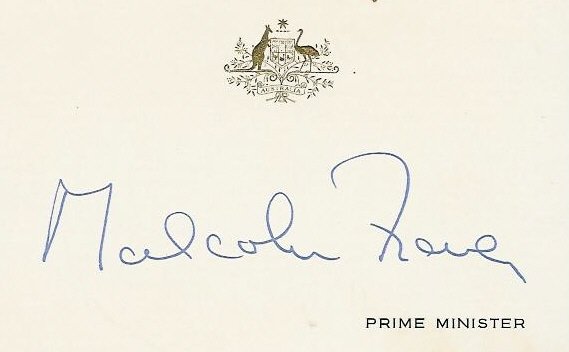 AUSTRALIA
Malcolm Fraser
PRIME MINISTER